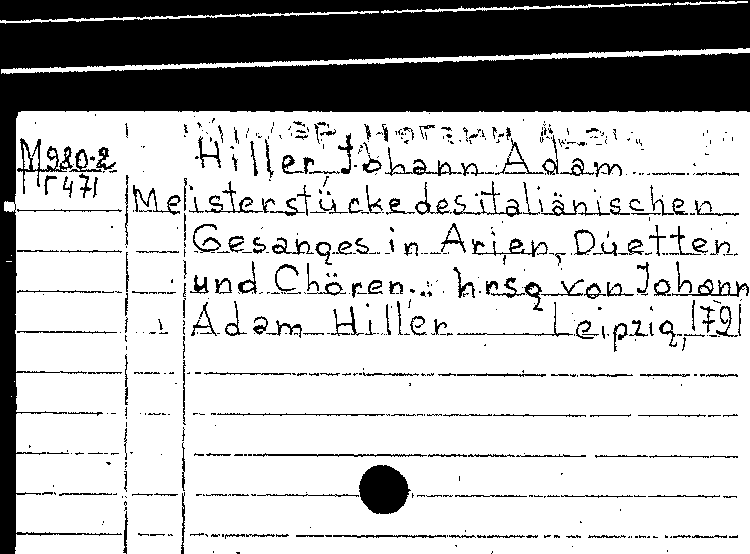 M980-2
Г471
Hiller, Johann Adam
Meisterstücke des italiänischen
Gesanges in Arien, Duetten
und Chören... hrsg von Johann
Adam Hiller Leipzig, 1791